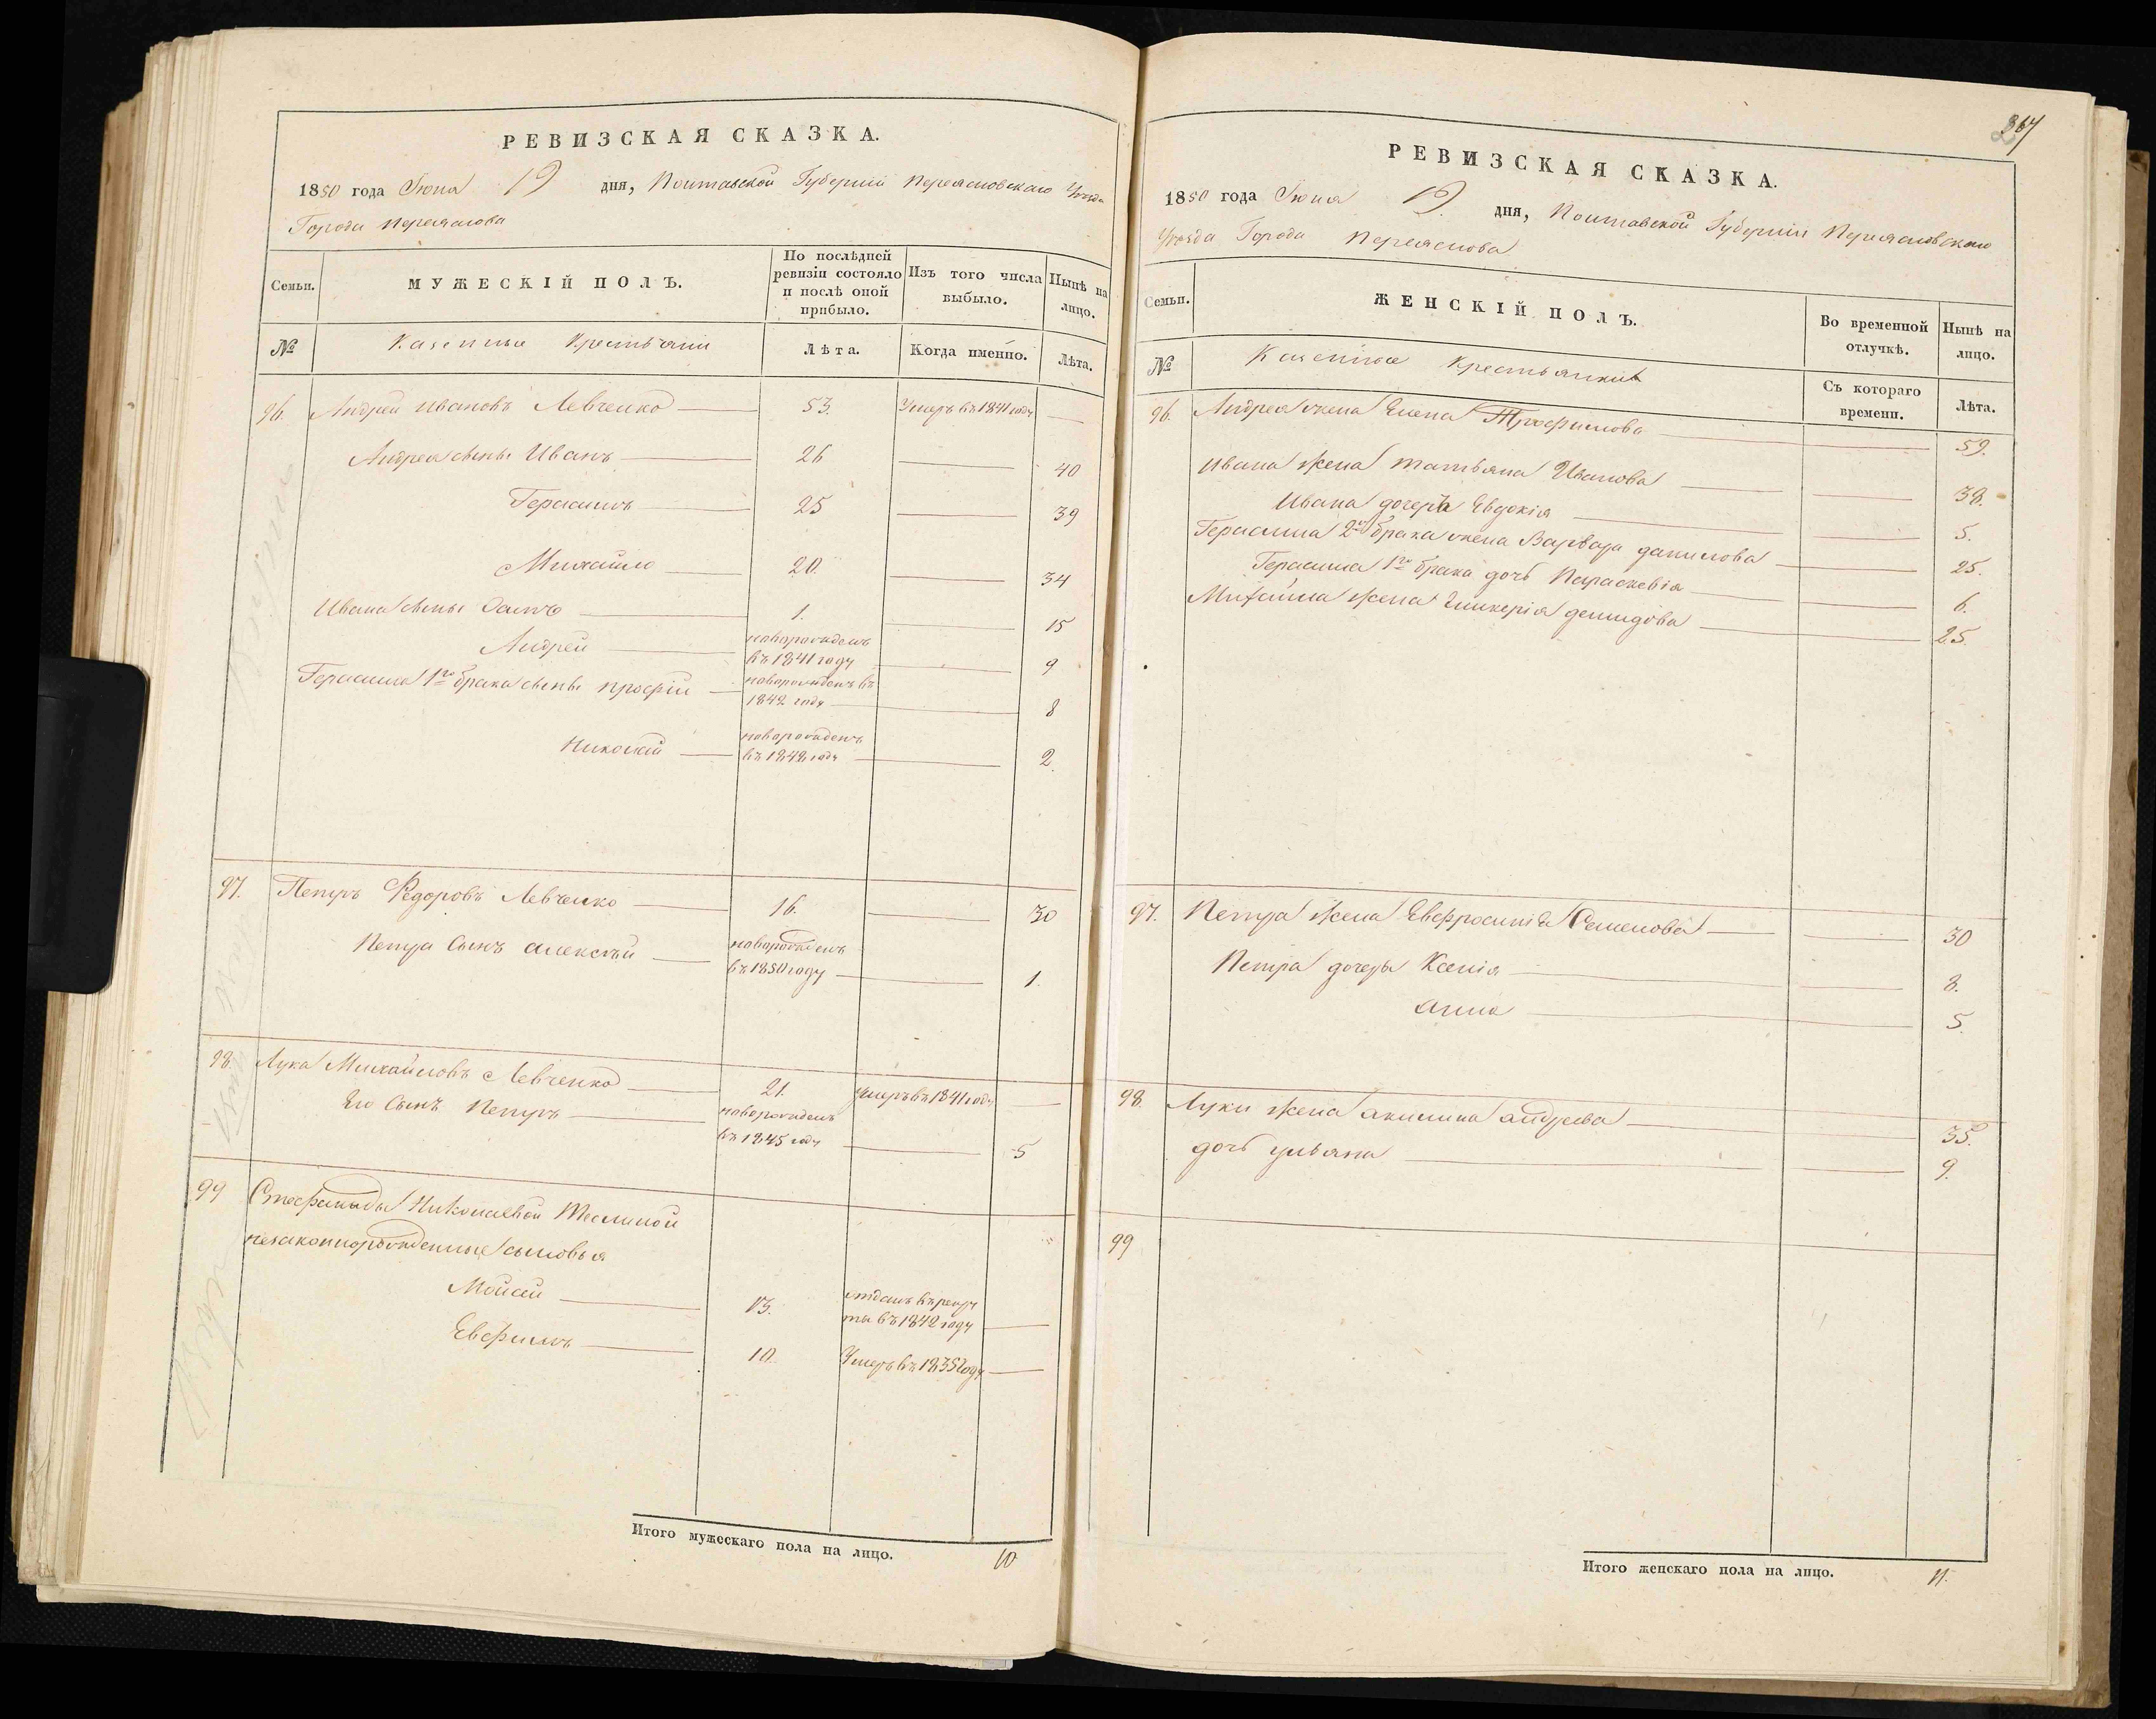 РЕВИЗСКАЯ СКАЗКА.
1850 года Іюня 19 дня, Полтавской Губерніи Переяславскаго Уезда
Города Переяслова
Семьи. МУЖЕСКІЙ ПОЛЪ. По послѣдней ревизіи состояло и послѣ оной прибыло. Изъ того числа выбыло. Нынѣ на лицо.
№ Казенные Крестьяне Лѣта. Когда именно. Лѣта.
96. Андрей Ивановъ Левченко 53. Умеръ въ 1841 году
Андрея сыны Иванъ 26 40
Герасимъ 25 39
Михайло 20. 34
Ивана сыны 1. 15
Андрей новорожденъ въ 1841 году 9
Герасима 1го брака сыны новорожденъ въ 1842 году 8
Николай новорожденъ въ 1848 году 2.
97. Петръ Федоровъ Левченко 16. 30
Петра Сынъ Алексей новорожденъ въ 1850 году 1.
98. Лука Михайловъ Левченко 21. умеръ въ 1841 году
Его Сынъ Петръ новорожденъ въ 1845 году 5
99 Стефаниды Николаевой
незаконнорожденные сыновья
Мойсей 13. отданъ въ рекруты въ 1842 году
Евфимъ 10. Умеръ въ 1835 году
Итого мужескаго пола на лицо. 10
367
РЕВИЗСКАЯ СКАЗКА.
1850 года Іюня 19. дня, Полтавской Губерніи Переясловскаго
Уезда Города Переяслова
Семьи. ЖЕНСКІЙ ПОЛЪ. Во временной отлучкѣ. Нынѣ на лицо.
№ Казенные Крестьянки Съ котораго времени. Лѣта.
96. Андрея жена Елена Трофимова 59.
Ивана жена Татьяна Иванова 38.
Ивана дочерь Евдокія 5.
Герасима 2го брака жена Варвара данилова 25.
Герасима 1го брака дочь Параскевія 6.
Михайла жена Гликерія демидова 25.
97. Петра жена Евфросинія Семенова 30
Петра дочеры Ксенія 8.
Анна 5.
98. Луки жена акилина андреева 35.
дочь ульяна 9.
99
Итого женскаго пола на лицо. 11.